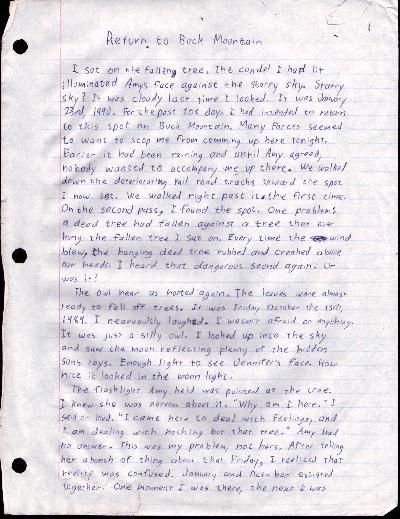 1
Return to Buck Mountain
I sat on the fallen tree. The candel I had lit
illuminated Amys face against the starry sky. Starry
sky? It was cloudy last time I looked. It was January
23rd, 1990. For the past 101 days I had intended to return
to this spot on Buck Mountain. Many forces seemed
to want to stop me from comming up here tonight.
Earlier it had been raining and until Amy agreed,
nobody wanted to accompany me up there. We walked
down the deteriorating rail road tracks toward the spot
I now sat. We walked right past it the first time.
On the second pass, I found the spot. One problem:
a dead tree had fallen against a tree that over
hung the fallen tree I sat on. Every time the wind
blew, the hanging dead tree rubbed and creaked above
our heads. I heard that dangerous sound again. Or
was it?
The owl near us hooted again. The leaves were almost
ready to fall off trees. It was Friday October the 13th,
1989. I nearvously laughed. I wasn't afraid or anything.
It was just a silly owl. I looked up into the sky
and saw the moon reflecting plenty of the hidden
suns rays. Enough light to see Jennifer's face. How
nice it looked in the moon light.
The flashlight Amy held was pointed at the tree.
I knew she was nervous about it. "Why am I here." I
said out loud. "I came here to deal with feelings, and
I am dealing with nothing but that tree." Amy had
no answer. This was my problem, not hers. After telling
her a bunch of thing about that Friday, I realized that
reality was confused. January and October existed
together. One moment I was there, the next I was